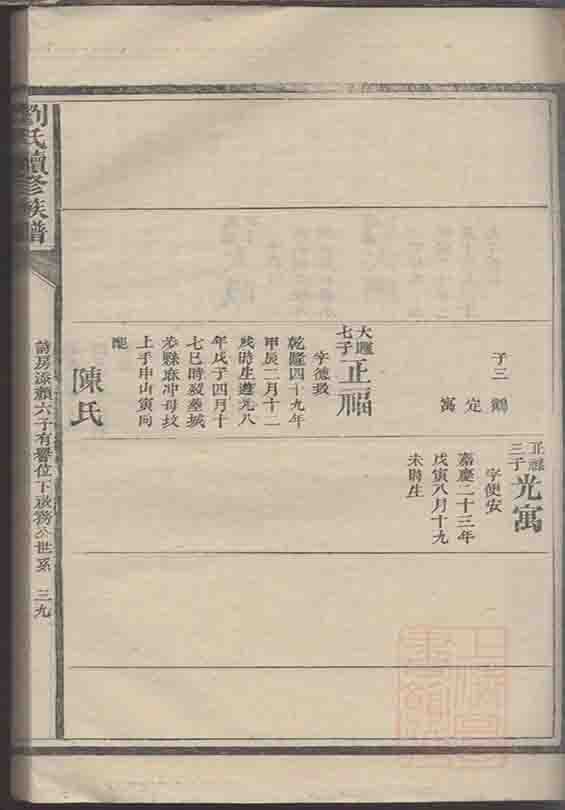 子三 鶴
定
寓
七子
正福
乾隆四十九年
甲辰二月十二
戌時生道光八
年戊子四月十
七巳時歿塟城
步縣麻冲母坟
上手申山寅向
配
陳氏
正福
三子
光寓
字便安
嘉慶二十三年
戊寅八月十九
未時生
劉氏續修族譜
六子有譽位下 公世系 三九